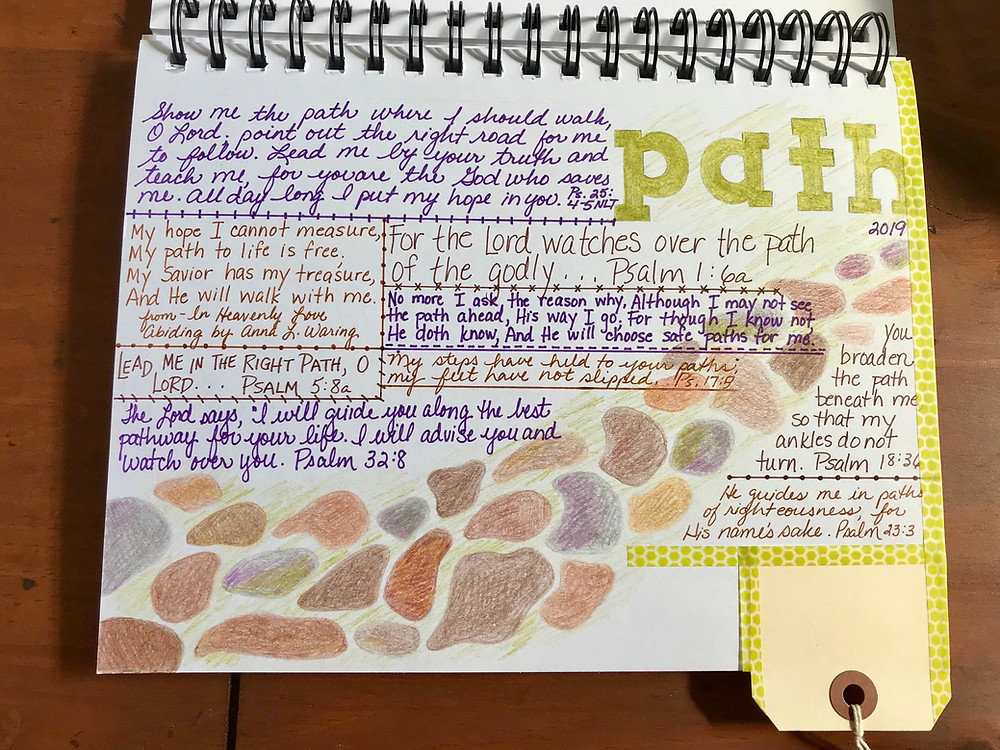 path
2019
Show me the path where I should walk,
O Lord; point out the right road for me
to follow. Lead me by your truth and
teach me, for you are the God who saves
me. All day long I put my hope in you. Ps. 25:
4-5 NLT
My hope I cannot measure,
My path to life is free.
My Savior has my treasure,
And He will walk with me.
from - In Heavenly Love
Abiding by Anna L. Waring
For the Lord watches over the path
of the godly... Psalm 1:6a
No more I ask, the reason why, Although I may not see
the path ahead, His way I go; For though I know not,
He doth know, And He will choose safe paths for me.
My steps have held to your paths;
my feet have not slipped. Ps. 17:5
LEAD, ME IN THE RIGHT PATH, O
LORD... PSALM 5:8a
The Lord says, "I will guide you along the best
pathway for your life. I will advise you and
watch over you. Psalm 32:8
You
broaden
the path
beneath me
so that my
ankles do not
turn. Psalm 18:36
He guides me in paths
of righteousness, for
His name's sake. Psalm 23:3